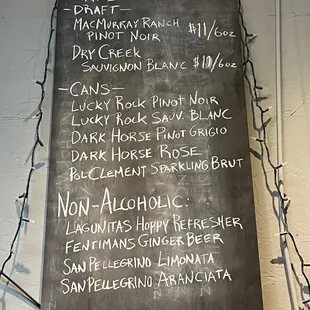 -DRAFT-
MACMURRAY RANCH
PINOT NOIR $11/6OZ
DRY CREEK
SAUVIGNON BLANC $10/6OZ
-CANS-
LUCKY ROCK PINOT NOIR
LUCKY ROCK SAUV. BLANC
DARK HORSE PINOT GRIGIO
DARK HORSE ROSE
POL CLEMENT SPARKLING BRUT
NON-ALCOHOLIC:
LAGUNITAS HOPPY REFRESHER
FENTIMANS GINGER BEER
SAN PELLEGRINO LIMONATA
SAN PELLEGRINO ARANCIATA